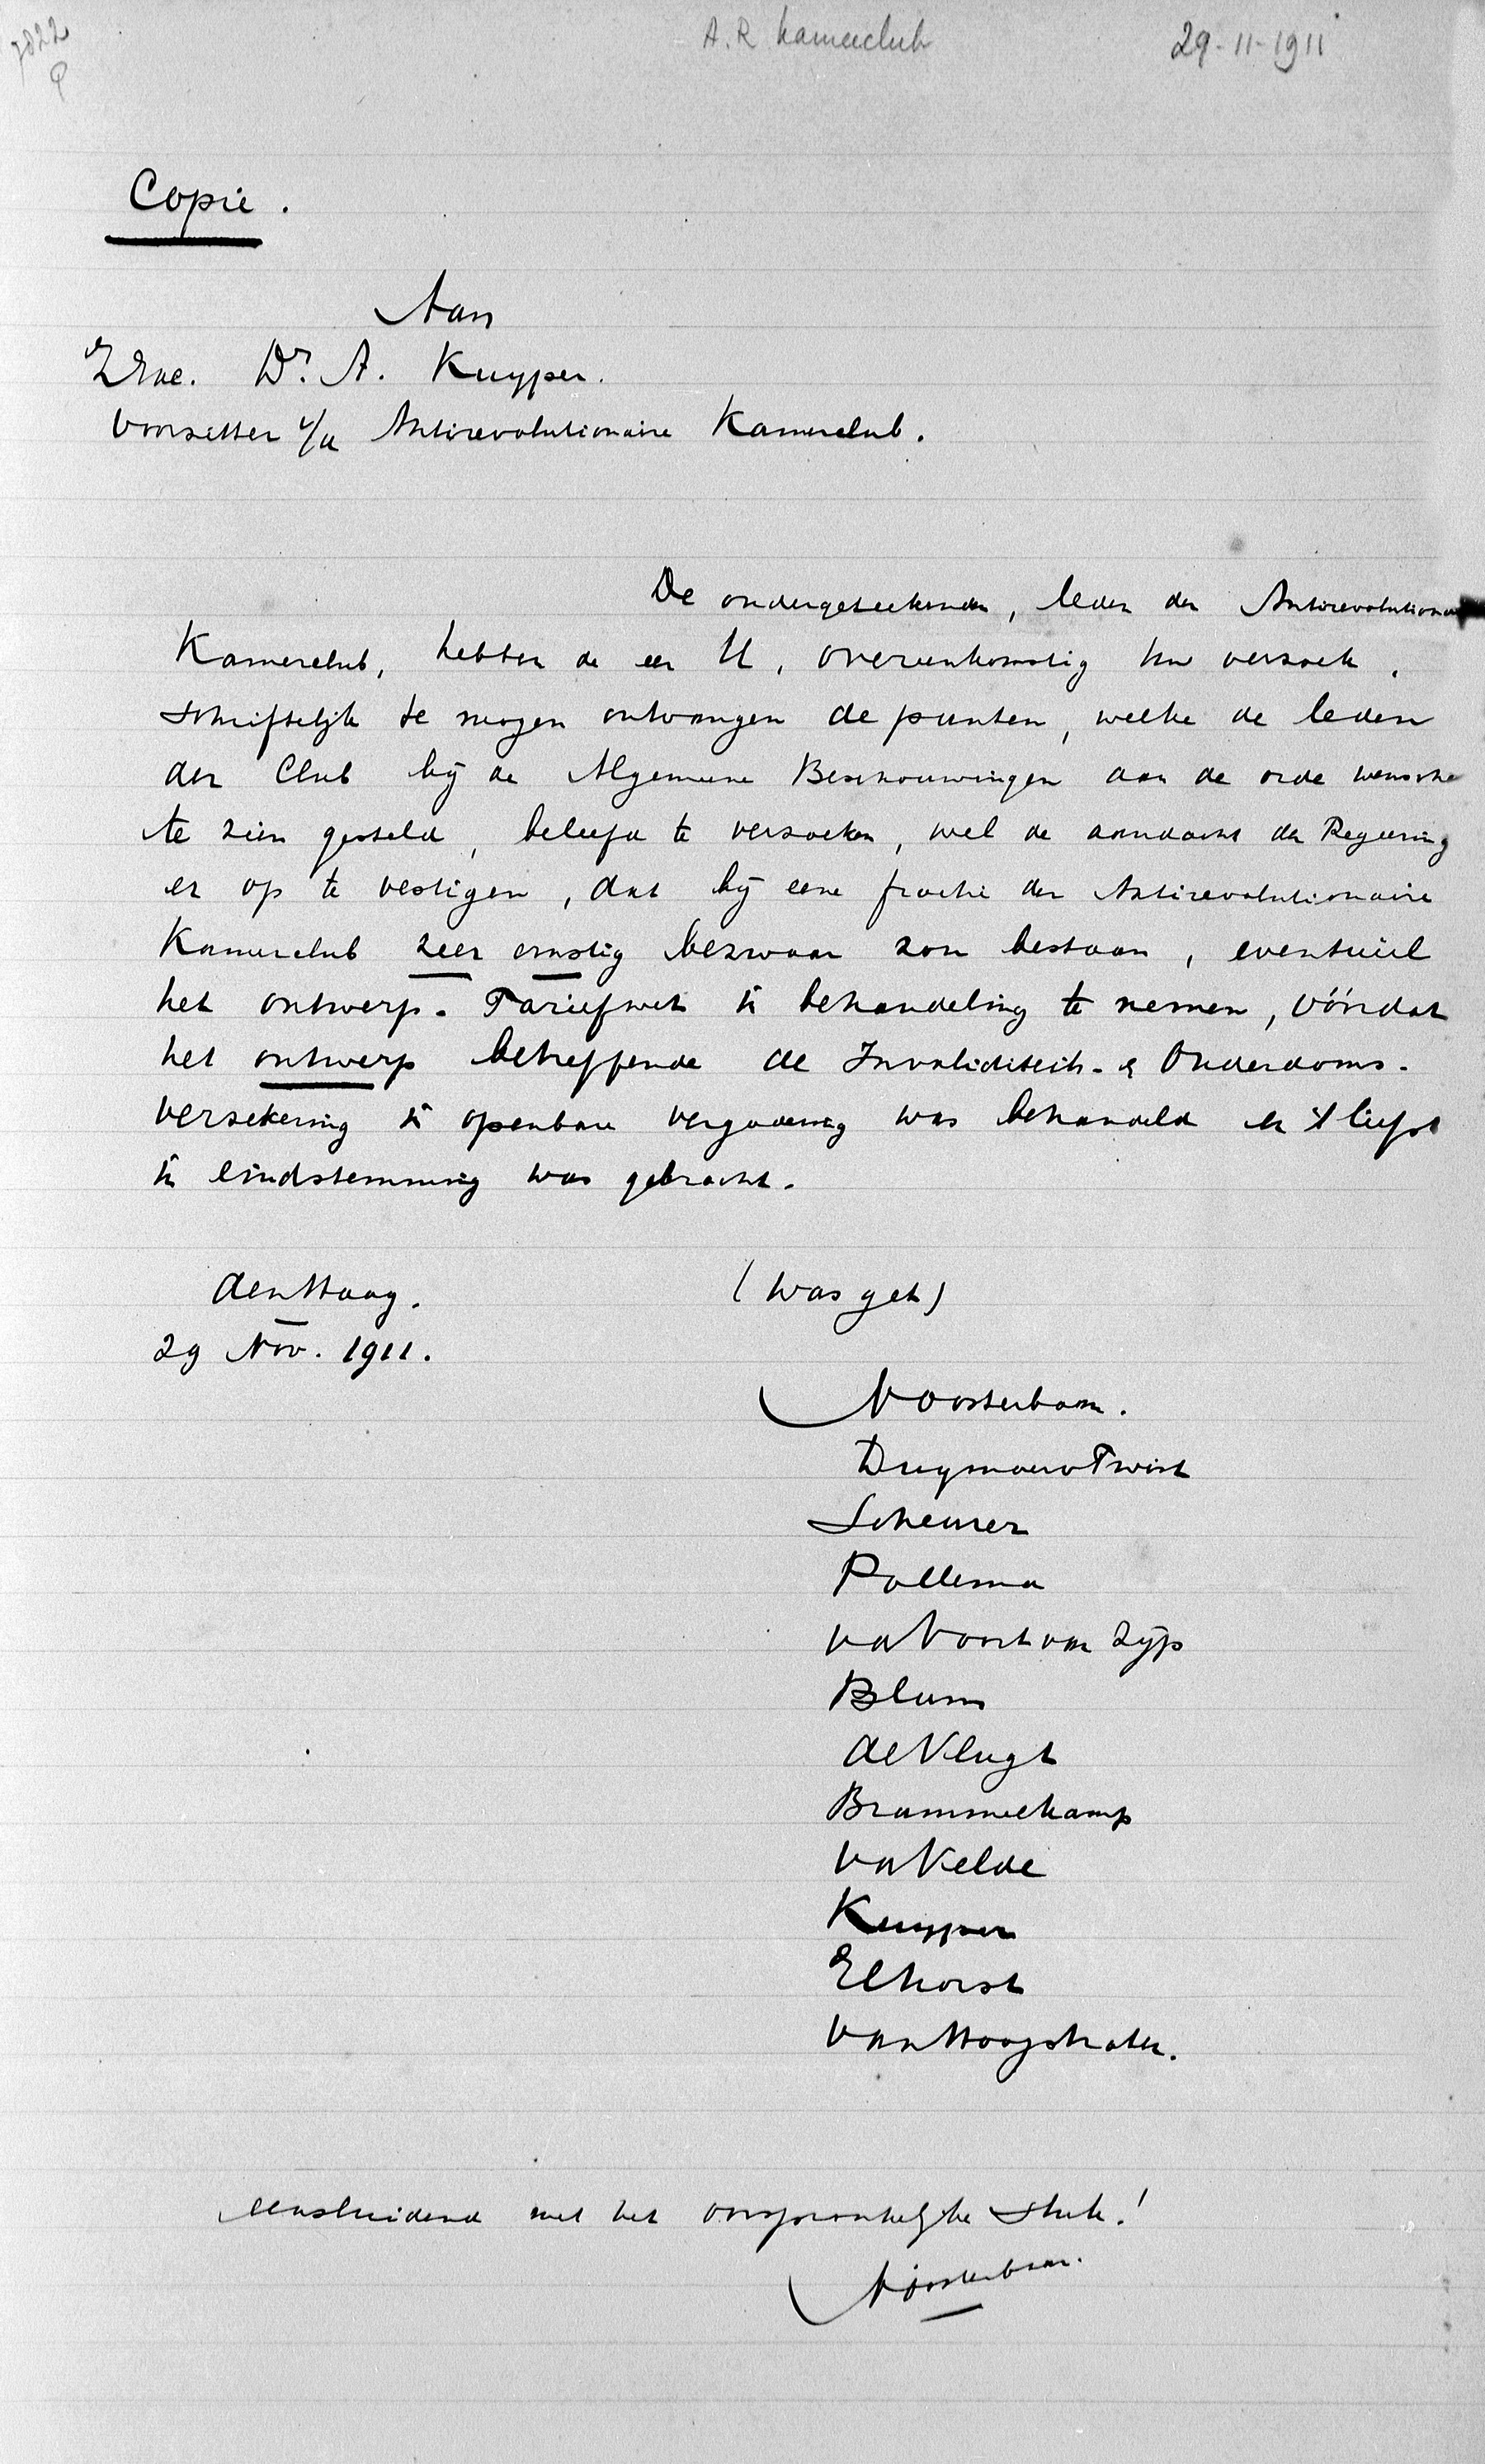 7822
A. R. Kamerclub
29-11-1911
Copie.
Aan
ZExc. Dr. A. Kuyper.
Voorzitter v/d Antirevolutionaire Kamerclub.
De ondergeteekenden, leden der Antirevolutionaire
Kamerclub, hebben de eer U, overeenkomstig Uw verzoek,
schriftelijk te mogen ontvangen de punten, welke de leden
der Club bij de Algemeene Beschouwingen aan de orde wenschen
te zien gesteld, beleefd te verzoeken, wel de aandacht der Regeering
er op te vestigen, dat bij eene fractie der Antirevolutionaire
Kamerclub zeer ernstig bezwaar zou bestaan, eventueel
het ontwerp. Tariefwet in behandeling te nemen, vóórdat
het ontwerp betreffende de Invaliditeits- & Ouderdoms-
verzekering in openbare vergadering was behandeld en 't liefst
in eindstemming was gebracht.
den Haag.
(was get)
29 Nov. 1911.
V Oosterbaan.
Duymaer v Twist
Scheurer
Pollema
v d Voort van Zijp
Blum
de Vlugt
Brummelkamp
v d Velde
Kuyper
Elhorst
van Hoogstraten.
eensluidend met het oorspronkelijke stuk!
V Oosterbaan.